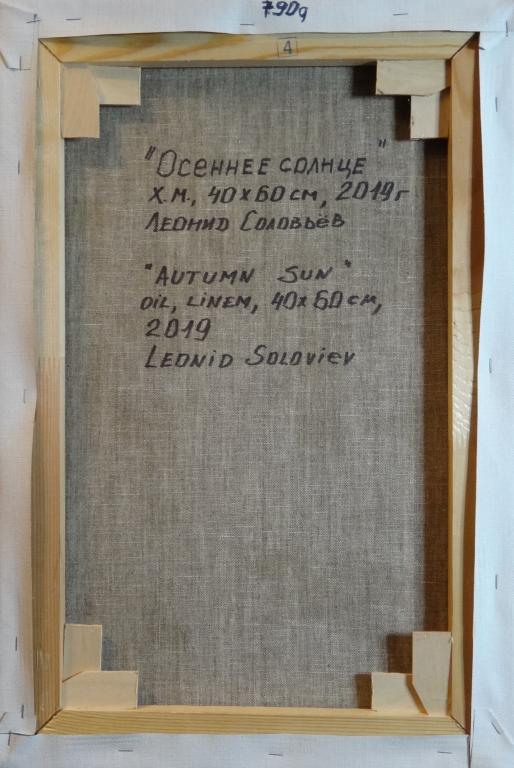 790g
4
"Осеннее солнце"
Х.М., 40х60см, 2019г
Леонид Соловьёв
"AUTUMN SUN"
OIL, LINEM, 40x60см,
2019
LEONID SOLOVIEV